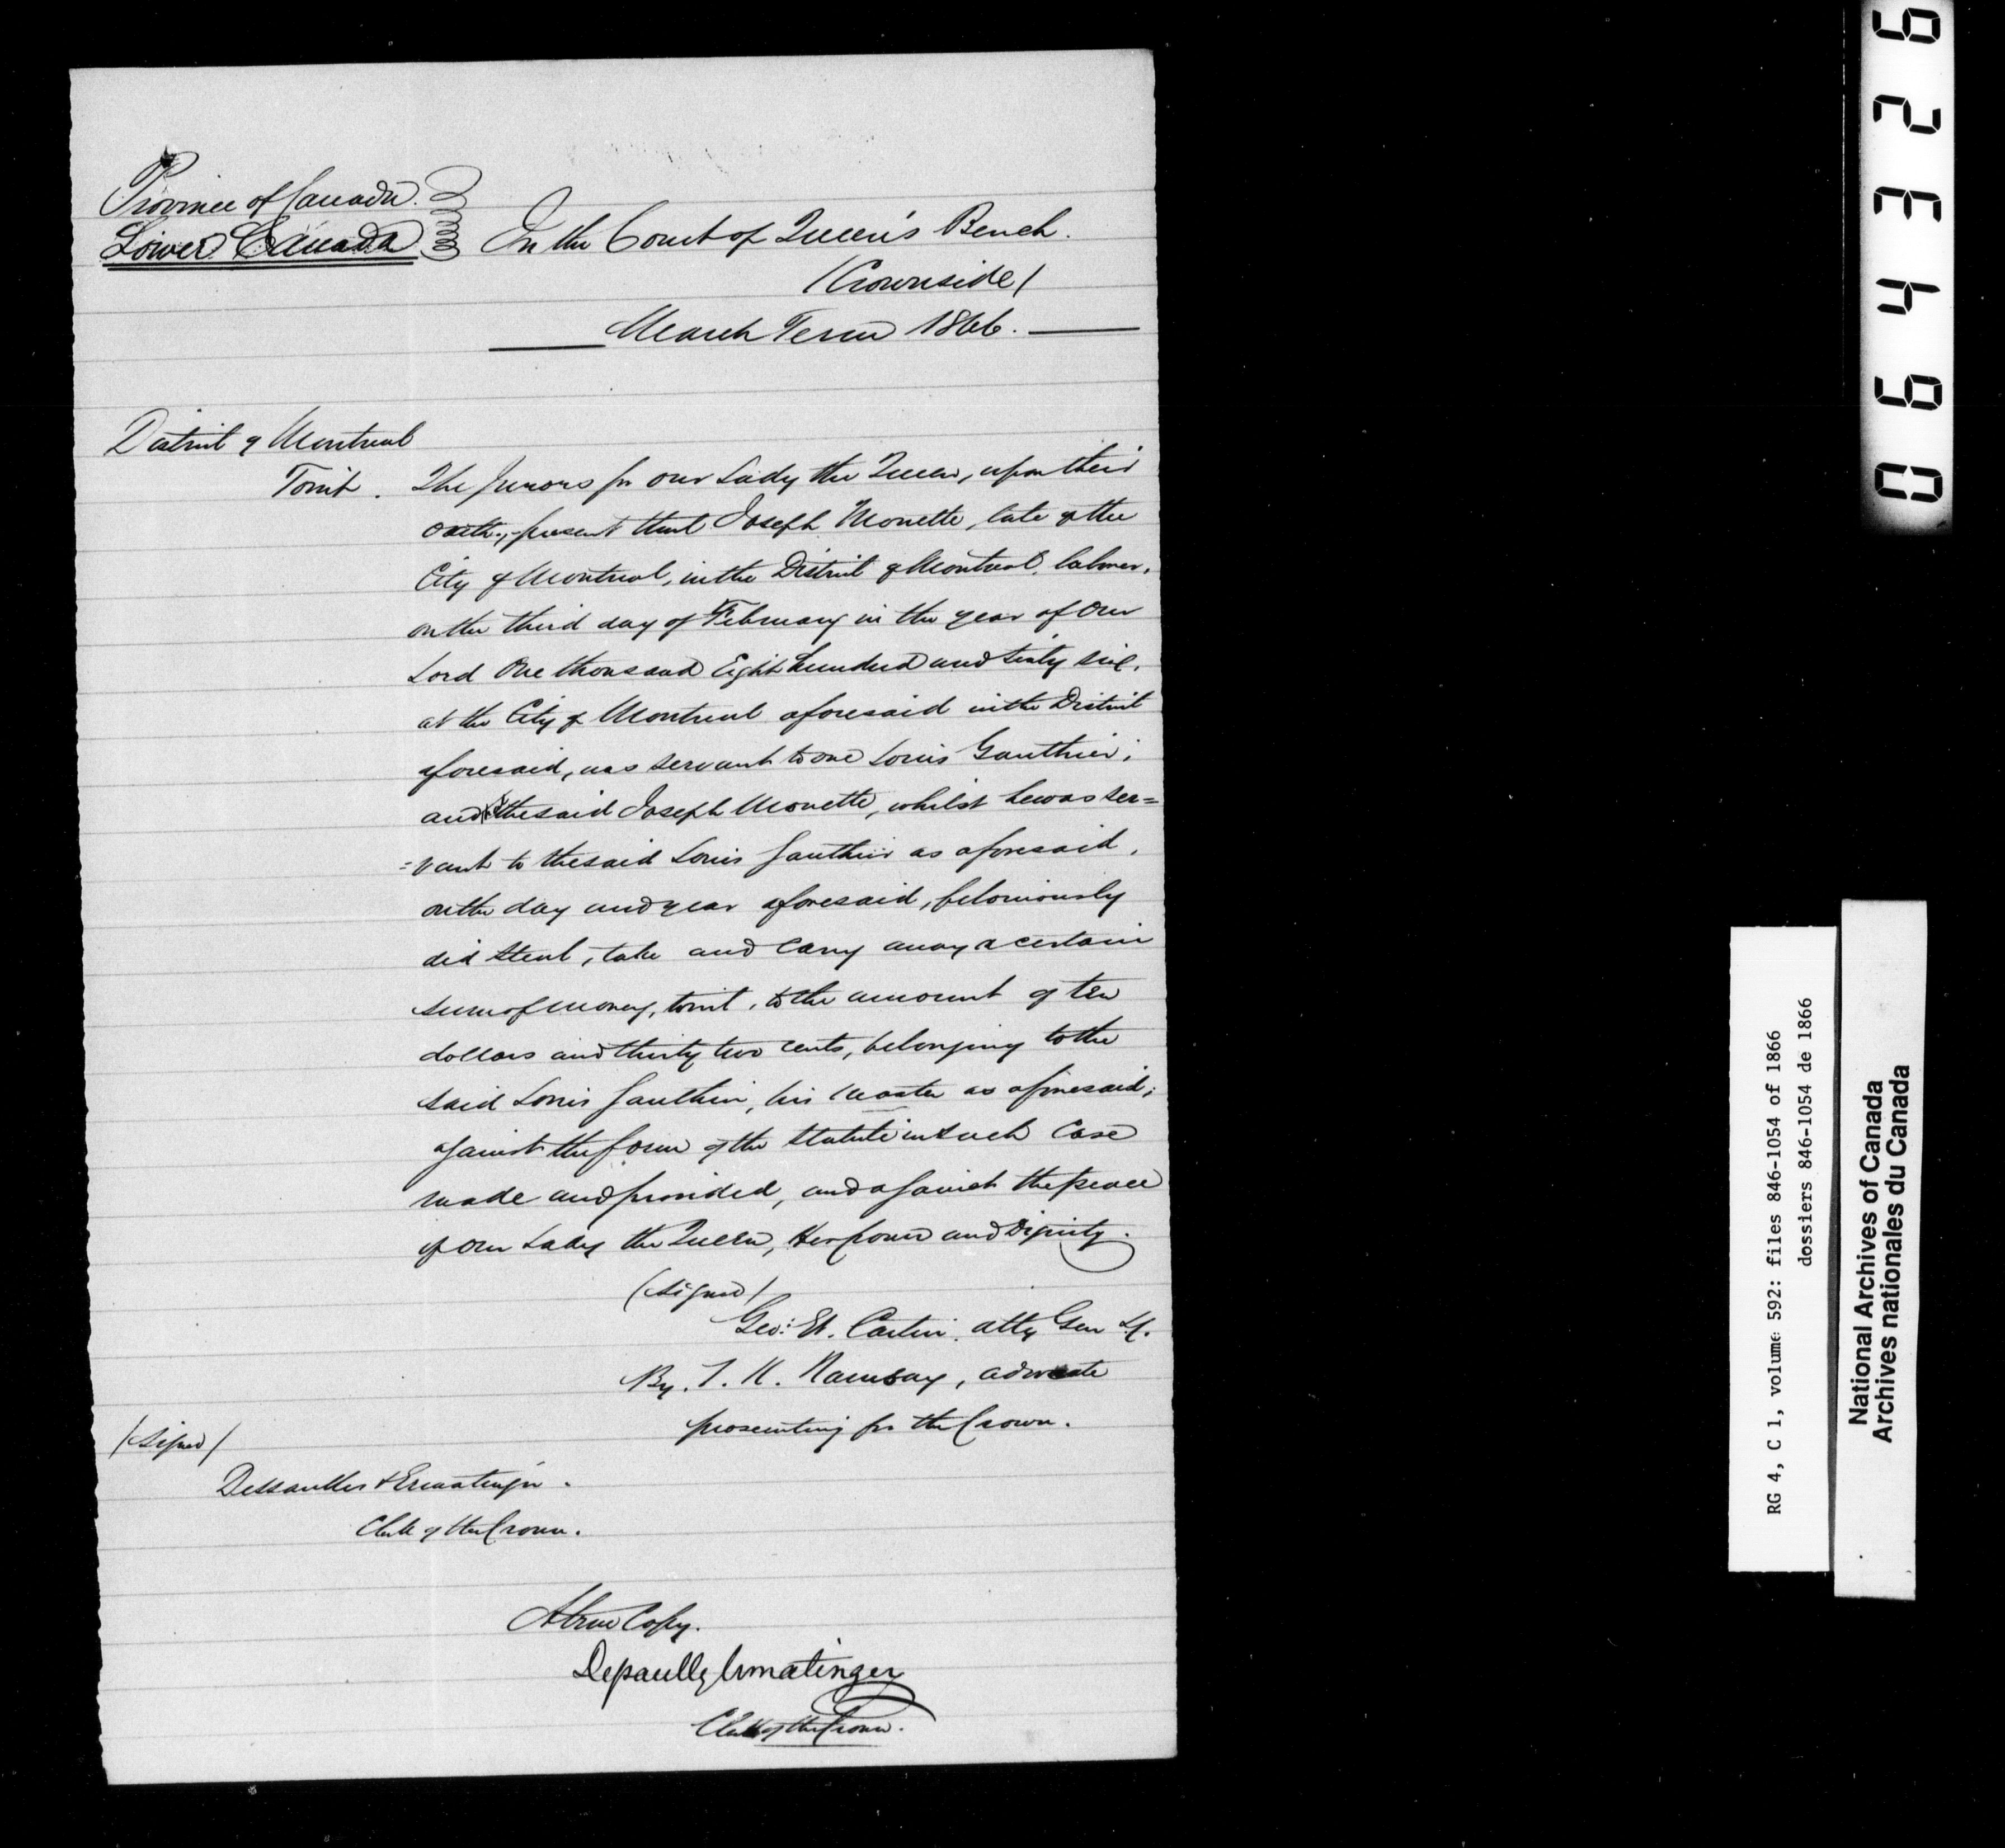 Province of Canada.
Lower Canada
In the Court of Queen's Bench.
/Crownside/
March Term 1866.
District of Montreal
Towit. The Jurors for our Lady the Queen, upon their
oath, present that Joseph Monette, late of the
City of Montreal, in the District of Montreal, laborer,
on the third day of February in the year of Our
Lord One thousand Eight hundred and sixty six,
at the City of Montreal aforesaid in the District
aforesaid, was servant to one Louis Gauthier;
and the said Joseph Monette, whilst he was ser=
=vant to the said Louis Gauthier as aforesaid,
on the day and year aforesaid, feloniously
did steal, take and carry away a certain
sum of money, towit, to the amount of ten
dollars and thirty two cents, belonging to the
said Louis Gauthier, his master as aforesaid;
against the form of the Statute in such Case
made and provided, and against the peace
of our Lady the Queen, Her power and Dignity.
(signed)
Geo: Et. Cartier. atty Gen L.C.
By. T. K. Ramsay, advocate
prosecuting for the Crown.
/signed/
Dessaulles & Ermatinger.
Clerk of the Crown.
A true Copy.
Dessaulles Ermatinger
Clerk of the Crown.
064326
RG 4, C 1, volume 592: files 846-1054 of 1866
dossiers 846-1054 de 1866
National Archives of Canada
Archives nationales du Canada